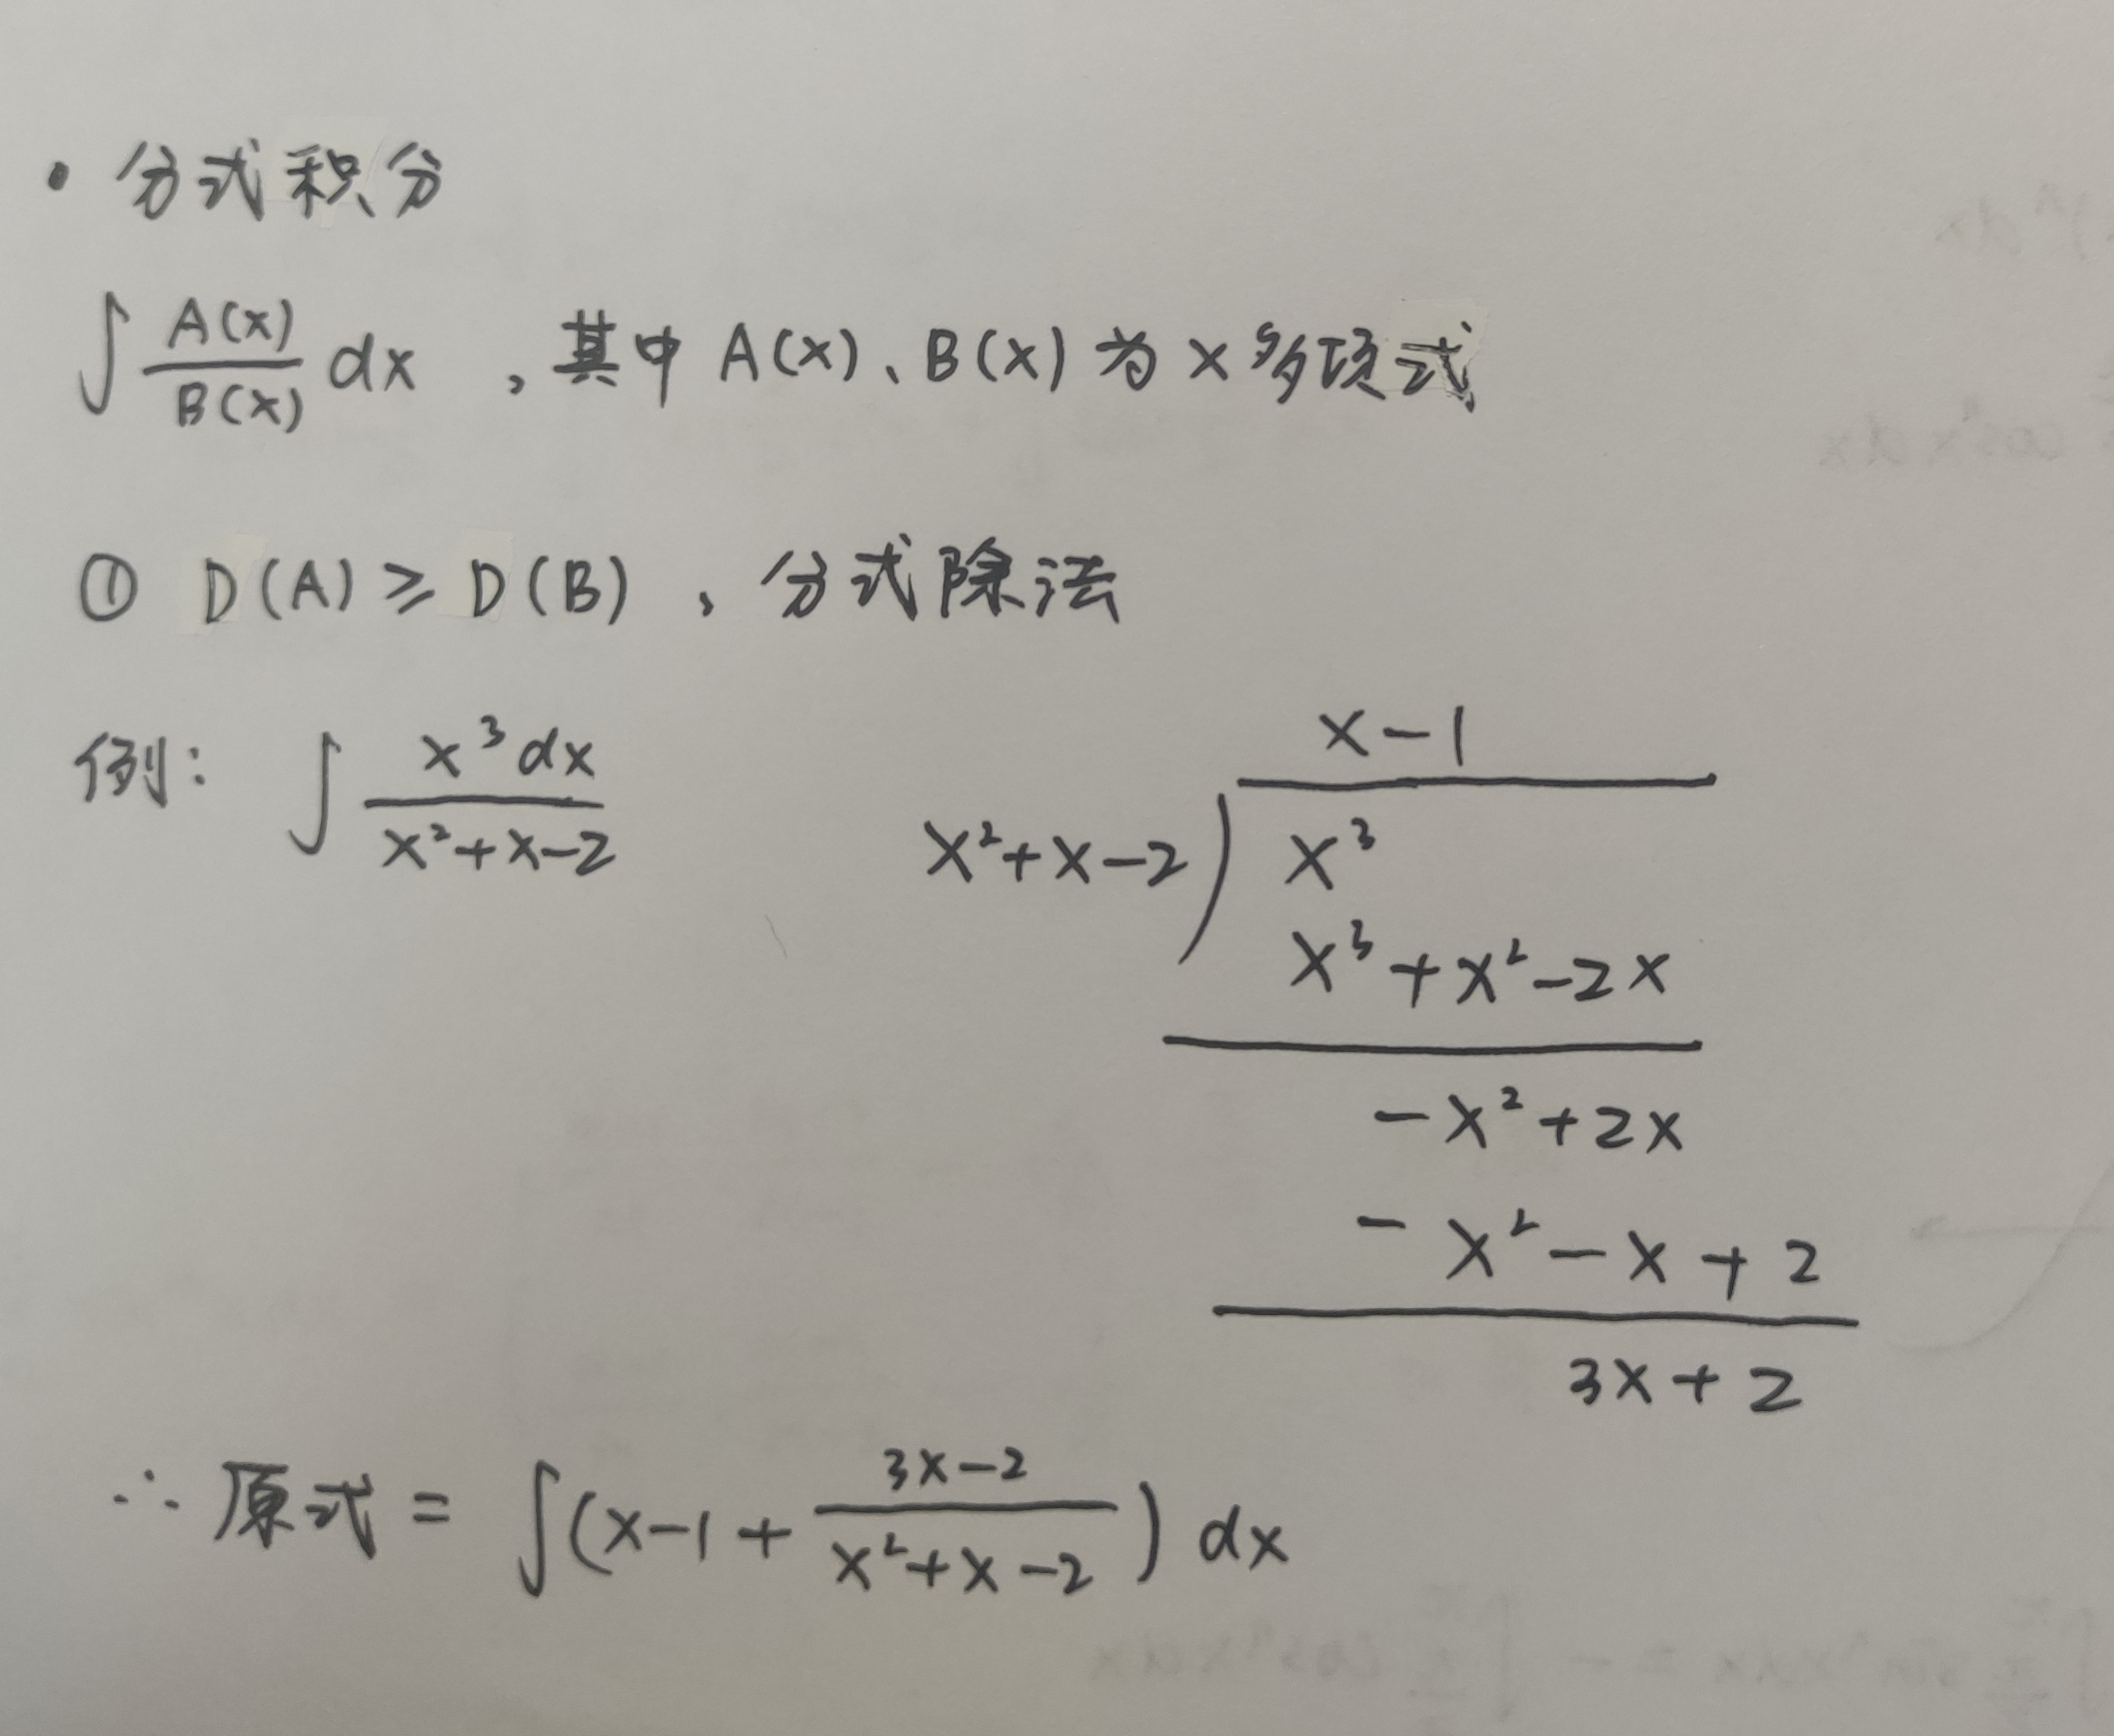 · 分式积分
∫ A(x)/B(x) dx ,其中 A(x)、B(x) 为 x 多项式
① D(A) ≥ D(B) 、分式除法
例: ∫ x³dx/(x²+x-2)
x-1
x²+x-2 ) x³
x³+x²-2x
-x²+2x
-x²-x+2
3x+2
∴ 原式 = ∫(x-1+ (3x-2)/(x²+x-2)) dx